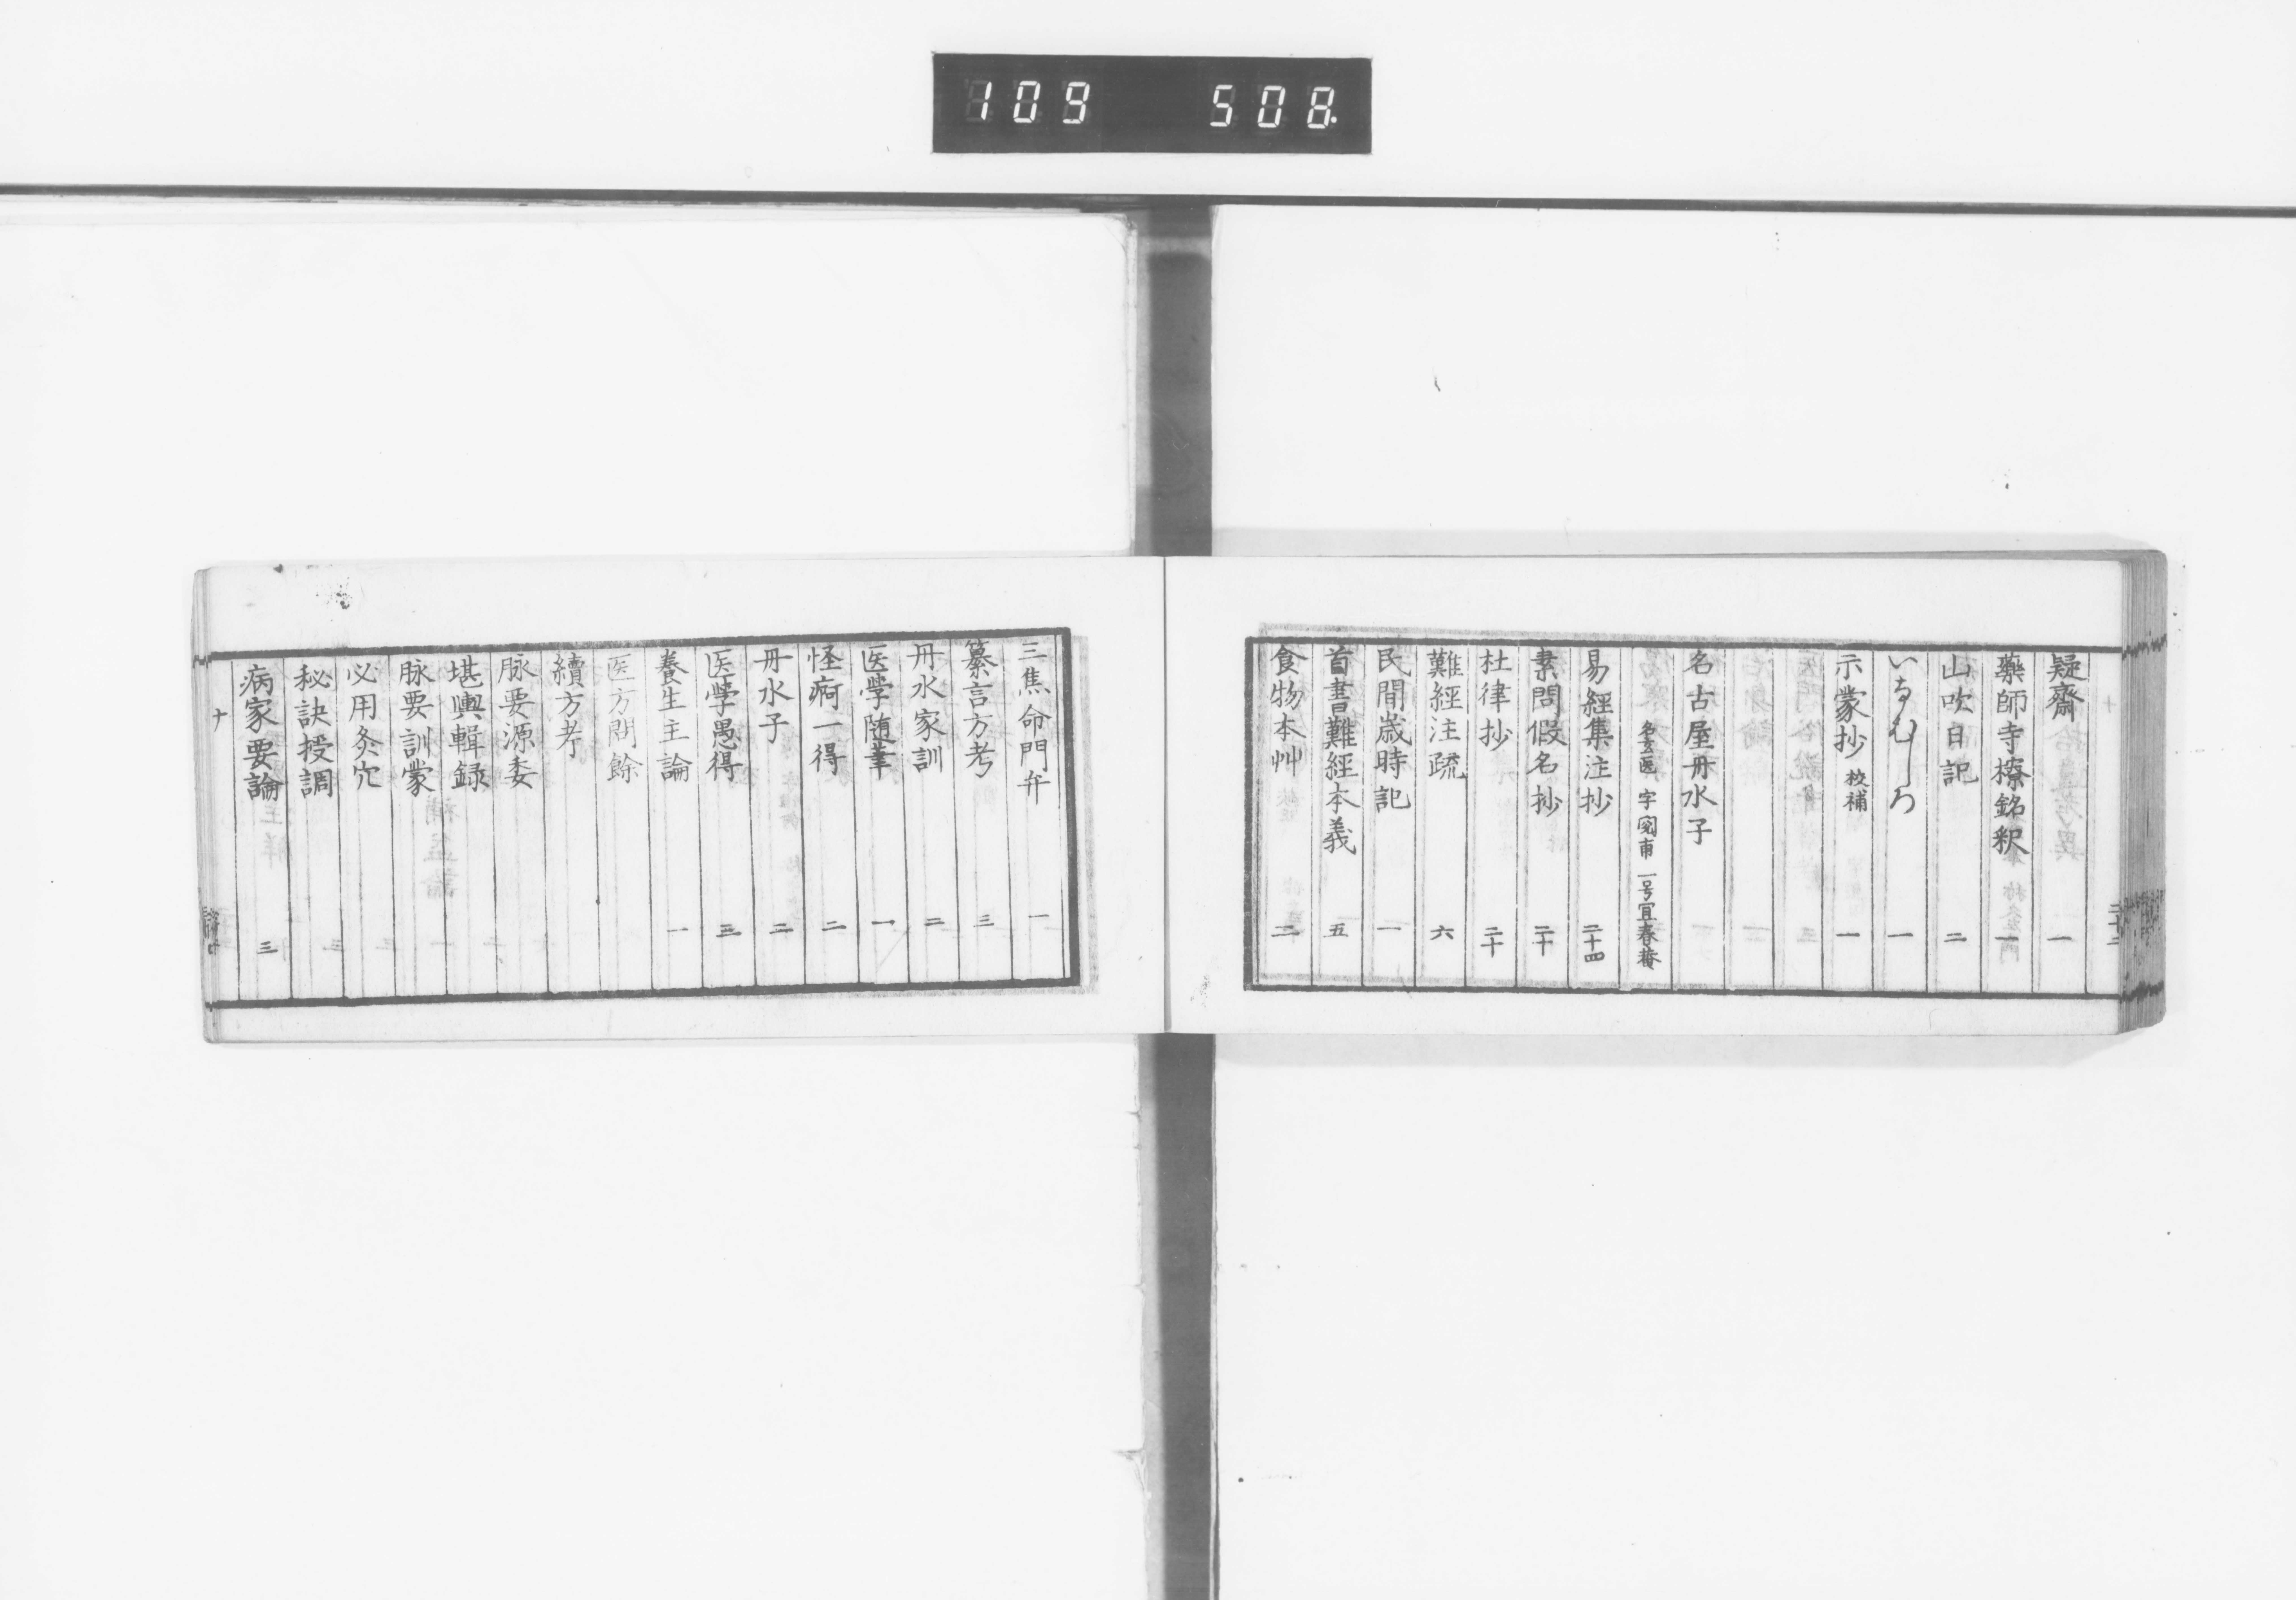 109 508.
疑齋 一
藥師寺檫銘釈 一
山吹日記 二
いなむしろ 一
示蒙抄 校補 一
名古屋丹水子
名玄医 字閲甫 一号宜春菴
易經集注抄 二十四
素問假名抄 二十
杜律抄 二十
難經注疏 六
民間歳時記 一
首書難經本義 五
食物本艸 二
三焦命門弁 一
纂言方考 三
丹水家訓 二
医学随筆 一
怪痾一得 二
丹水子 二
医学愚得 三
養生主論 一
医方問餘
續方考
脉要源委
堪輿輯録
脉要訓蒙
必用灸穴
秘訣授調
病家要論 三
十